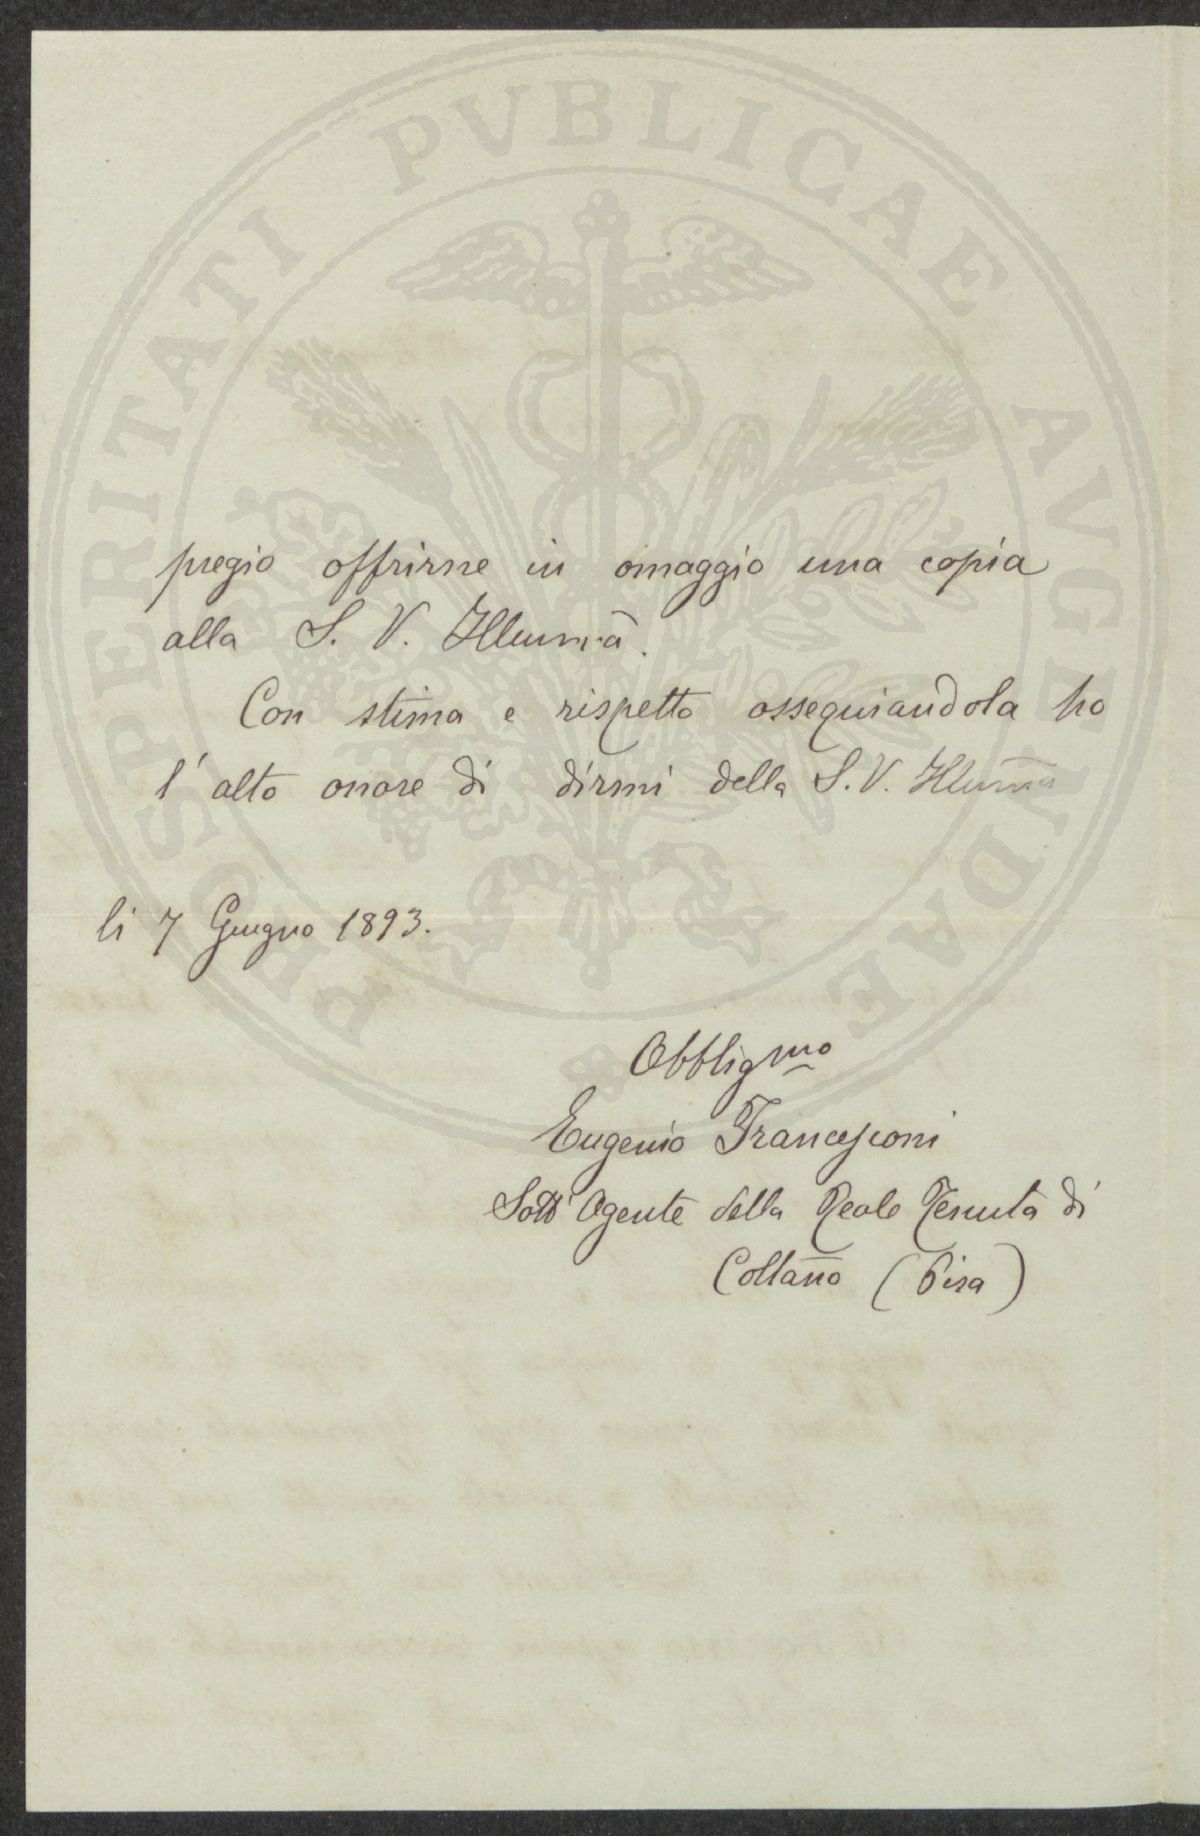 pregio offrirne in omaggio una copia
alla S. V. Illumā.
Con stima e rispetto ossequiandola ho
l'alto onore di dirmi della S. V. Illumā
li 7 Giugno 1893.
Obbligmo
Eugenio Francesconi
Sott'Agente della Reale Tenuta di
Coltano (Pisa)
PROSPERITATI PVBLICAE AVGENDAE